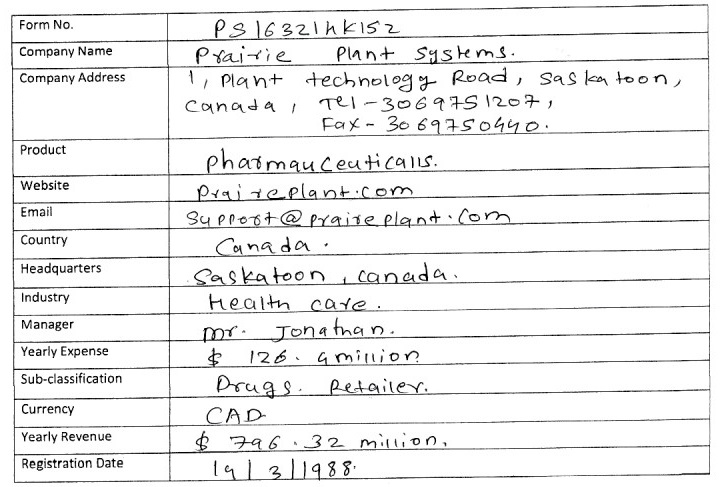 Form No. PS16321hK152
Company Name Prairie Plant Systems.
Company Address 1, Plant technology Road, Saskatoon,
Canada, Tel-3069751207,
Fax-3069750440.
Product Pharmauceuticalls.
Website Praireplant.com
Email Support@praireplant.com
Country Canada.
Headquarters Saskatoon, Canada.
Industry Health care.
Manager Mr. Jonathan.
Yearly Expense $ 126.9million
Sub-classification Drugs. Retailer.
Currency CAD
Yearly Revenue $ 796.32 million.
Registration Date 19/3/1988.